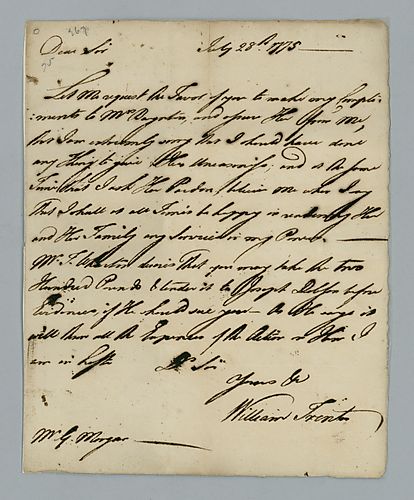 Dear Sir July 28th 1775
Let me request the Favor of you to make my Compli-
-ments to Mrs and assure Her from Me,
that I am extremely sorry that I should have done
any thing to give Her Uneasiness, and at the same
Time that I ask Her Pardon, believe me when I say
that I shall at all Times be happy in rendering Her
and Her Family any Services in my Power.
Mr. T. Wharton desires that you may take the two
Hundred Pounds & tender it to Joseph before
Evidences, if He should sue you As He says it
will throw all the Expences of the Action on Him. I
am in haste Dr Sir
Yours &c
William Trent
Mr. G. Morgan